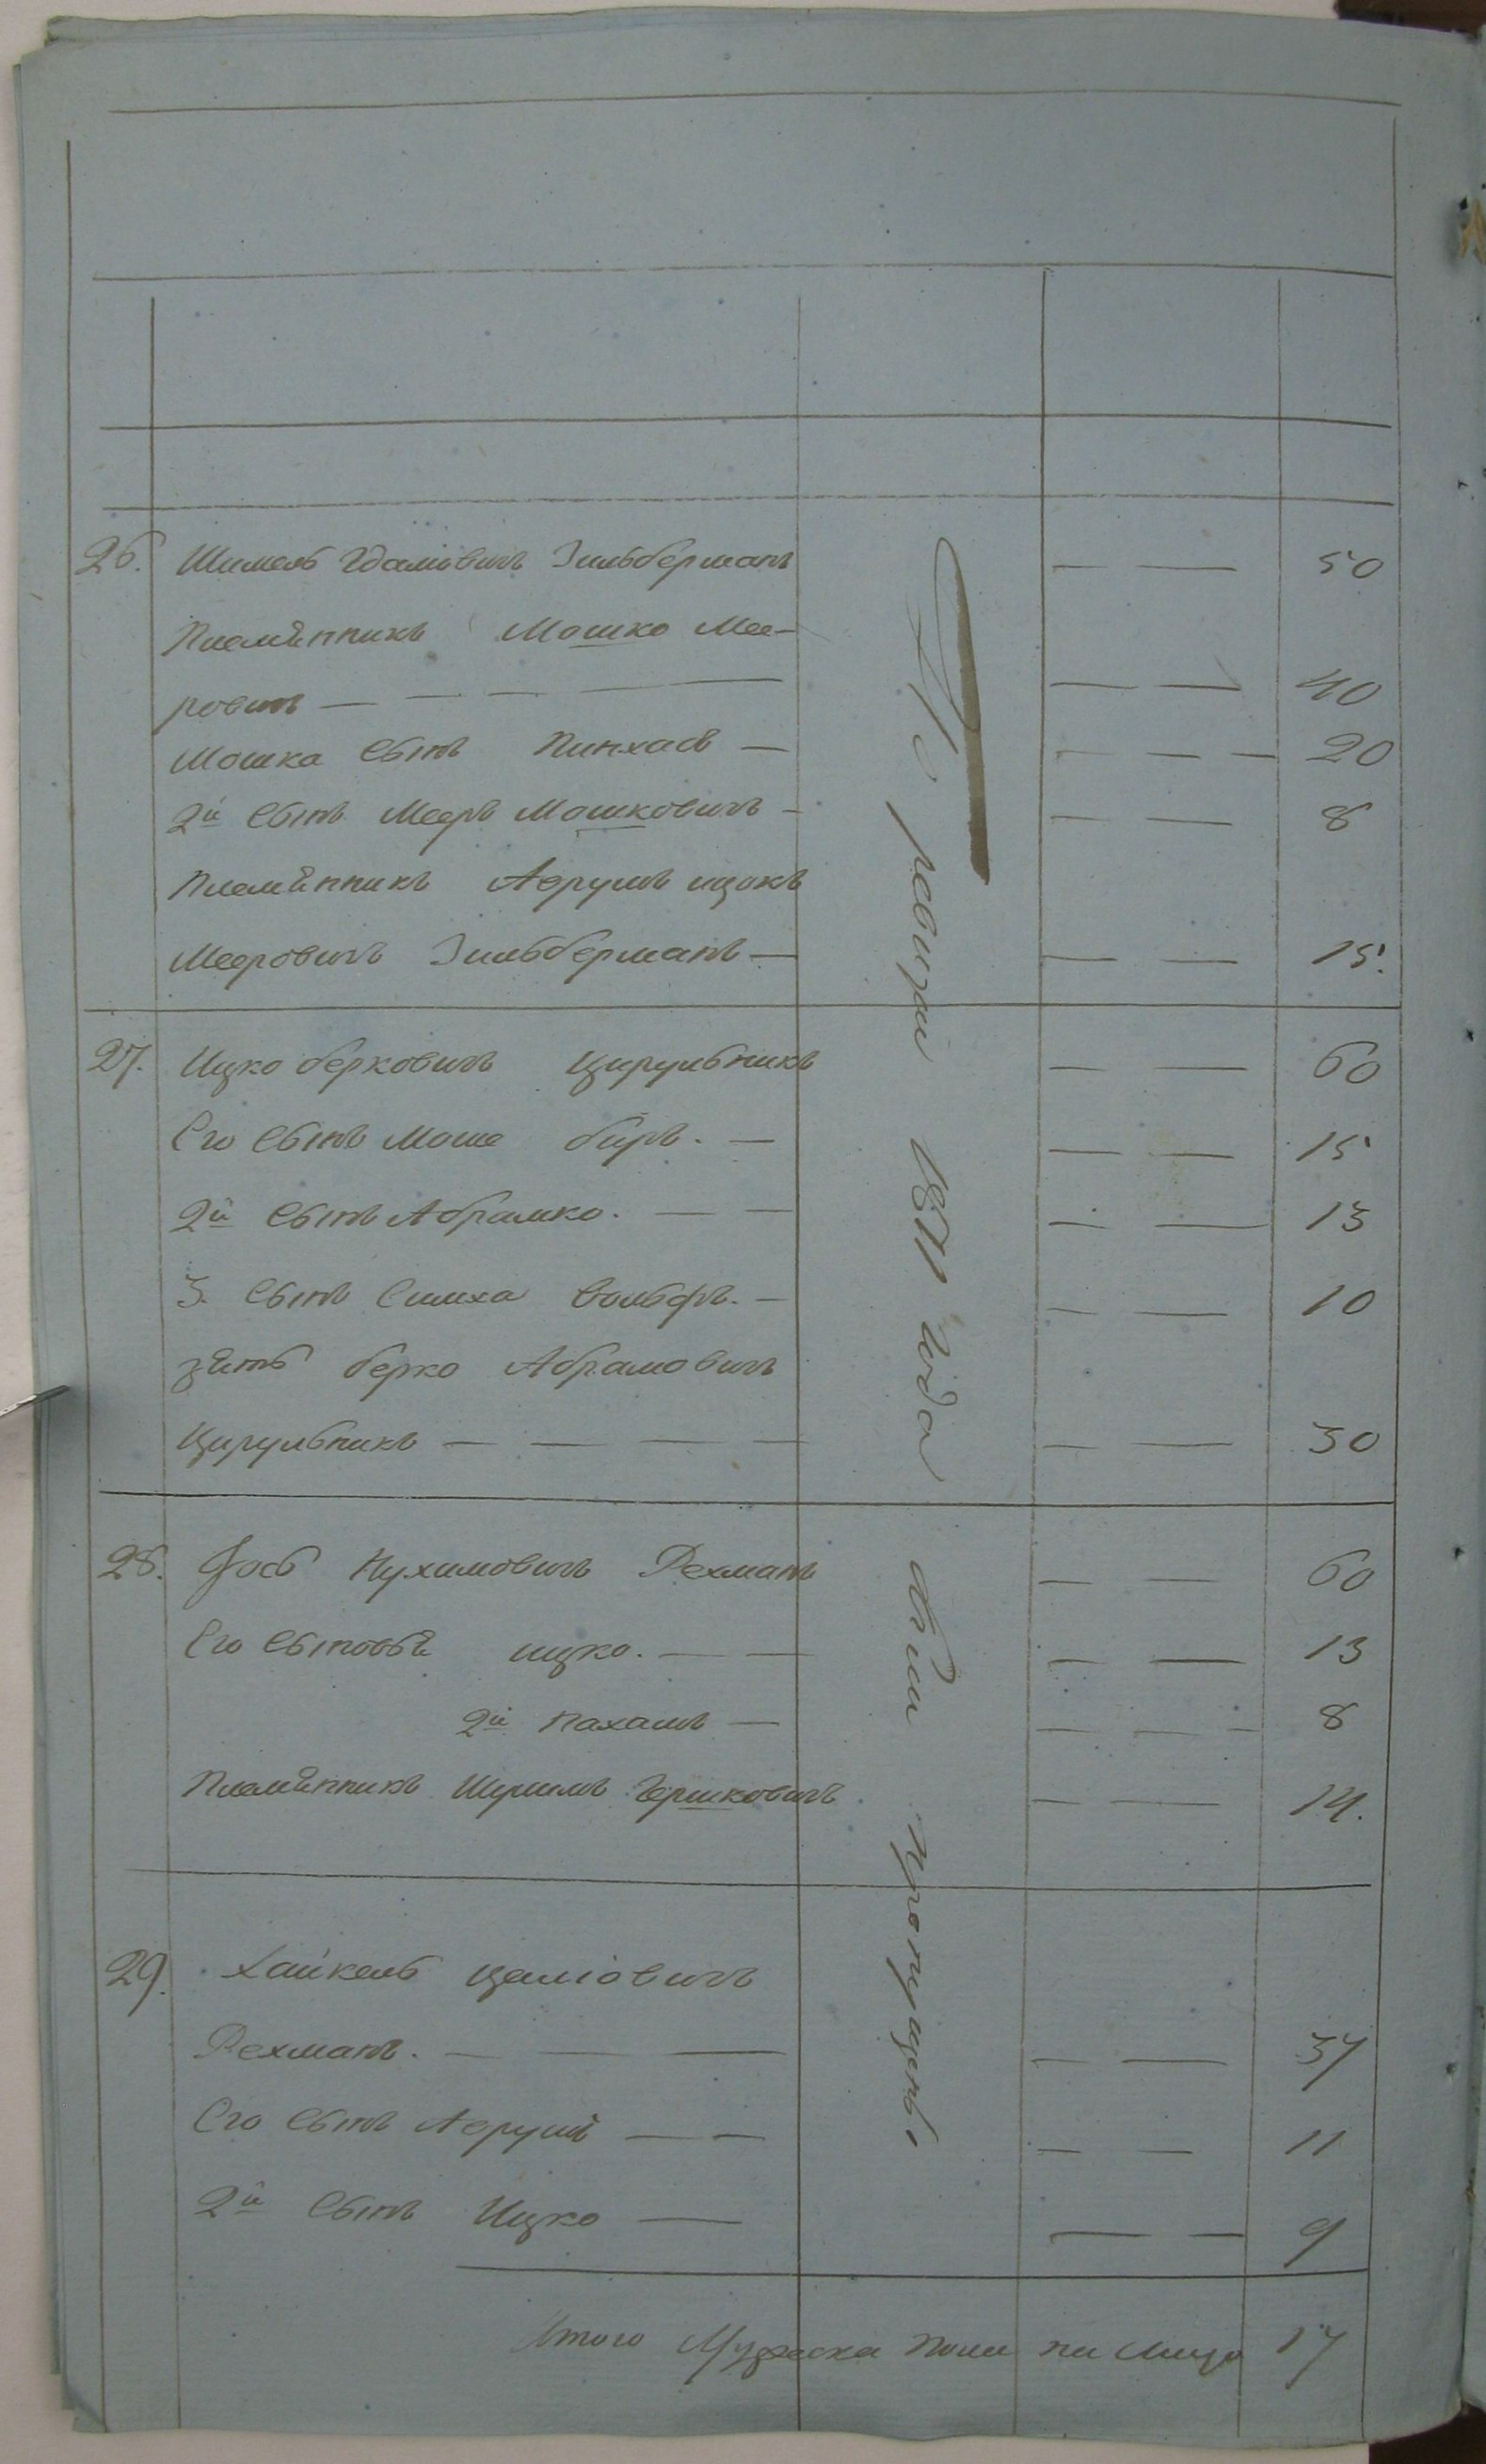 26. Шимель Удамовичъ Зильберманъ — — 50
Племѣнникъ Мошко Мее-
ровичъ — — — — — — 40
Мошка Сынъ Пинхасъ — — — — 20
2й Сынъ Мееръ Мошковичъ — — — 8
Племѣнникъ Аврумъ ицокъ
Мееровичъ Зильберманъ — — — 15.
27. Ицко берковичъ Цирульникъ — — 60
Его Сынъ Моше беръ. — — — 15
2й Сынъ Абрамко. — — — — 13
3. Сынъ Симха Вольфъ. — — — 10
зѣть берко Абрамовичъ
Цирульникъ — — — — — — 30
28. Іось Нухимовичъ Рехманъ — — 60
Его Сыновьѣ ицко. — — — — 13
2й Нахамъ — — — — 8
Племѣнникъ Шулимъ Гершковичъ — — 14.
29. Хайкель Целіовичъ
Рехманъ. — — — — — 37
Его Сынъ Аврумъ — — — — 11
2й Сынъ Ицко — — — 9
По ревизіи 1811 года были пропущены
Итого Мужеска пола на лицо 17